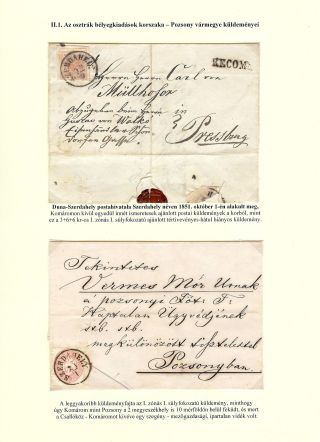 II.1. Az osztrák bélyegkiadások korszaka – Pozsony vármegye küldeményei
SZERDAHELY
RECOM:
Herrn Herrn Carl von
Müllhofer
Abzugeben beim Herrn
Gustav von
Pressburg
Duna-Szerdahely postahivatala Szerdahely néven 1851. október 1-én alakult meg.
Komáromon kívül egyedül innét ismeretesek ajánlott postai küldemények a korból, mint
ez a 3+6+6 kr-es I. zónás I. súlyfokozatú ajánlott tértivevényes-hátul hiányos küldemény.
Tekintetes
Vermes Mór Urnak
a pozsonyi Főt: F.
Káptalan Ügyvédjének
stb. stb.
megkülönözött tisztelettel
SZERDAHELY
Pozsonyban.
A leggyakoribb küldeményfajta az I. zónás I. súlyfokozatú küldemény, minthogy
úgy Komárom mint Pozsony a 2 megyeszékhely is 10 mérföldön belül feküdt, és mert
a Csallóköz - Komáromot kivéve egy szegény – mezőgazdasági, ipartalan vidék volt.